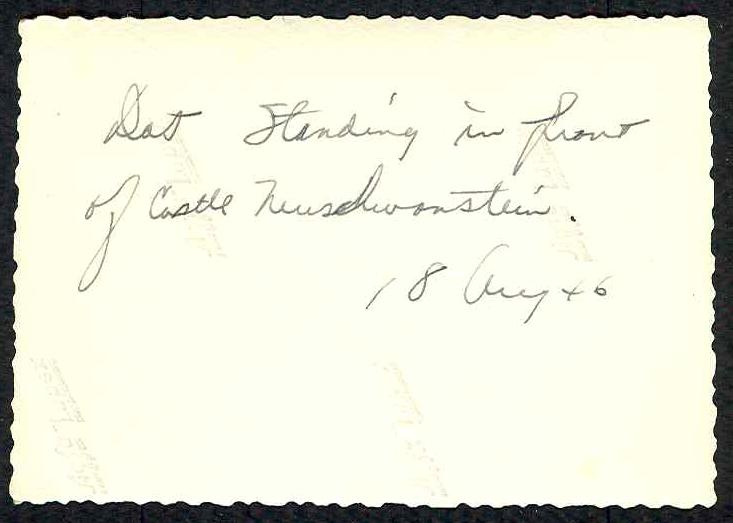 Dot Standing in front
of Castle Neuschwanstein.
18 Aug 46